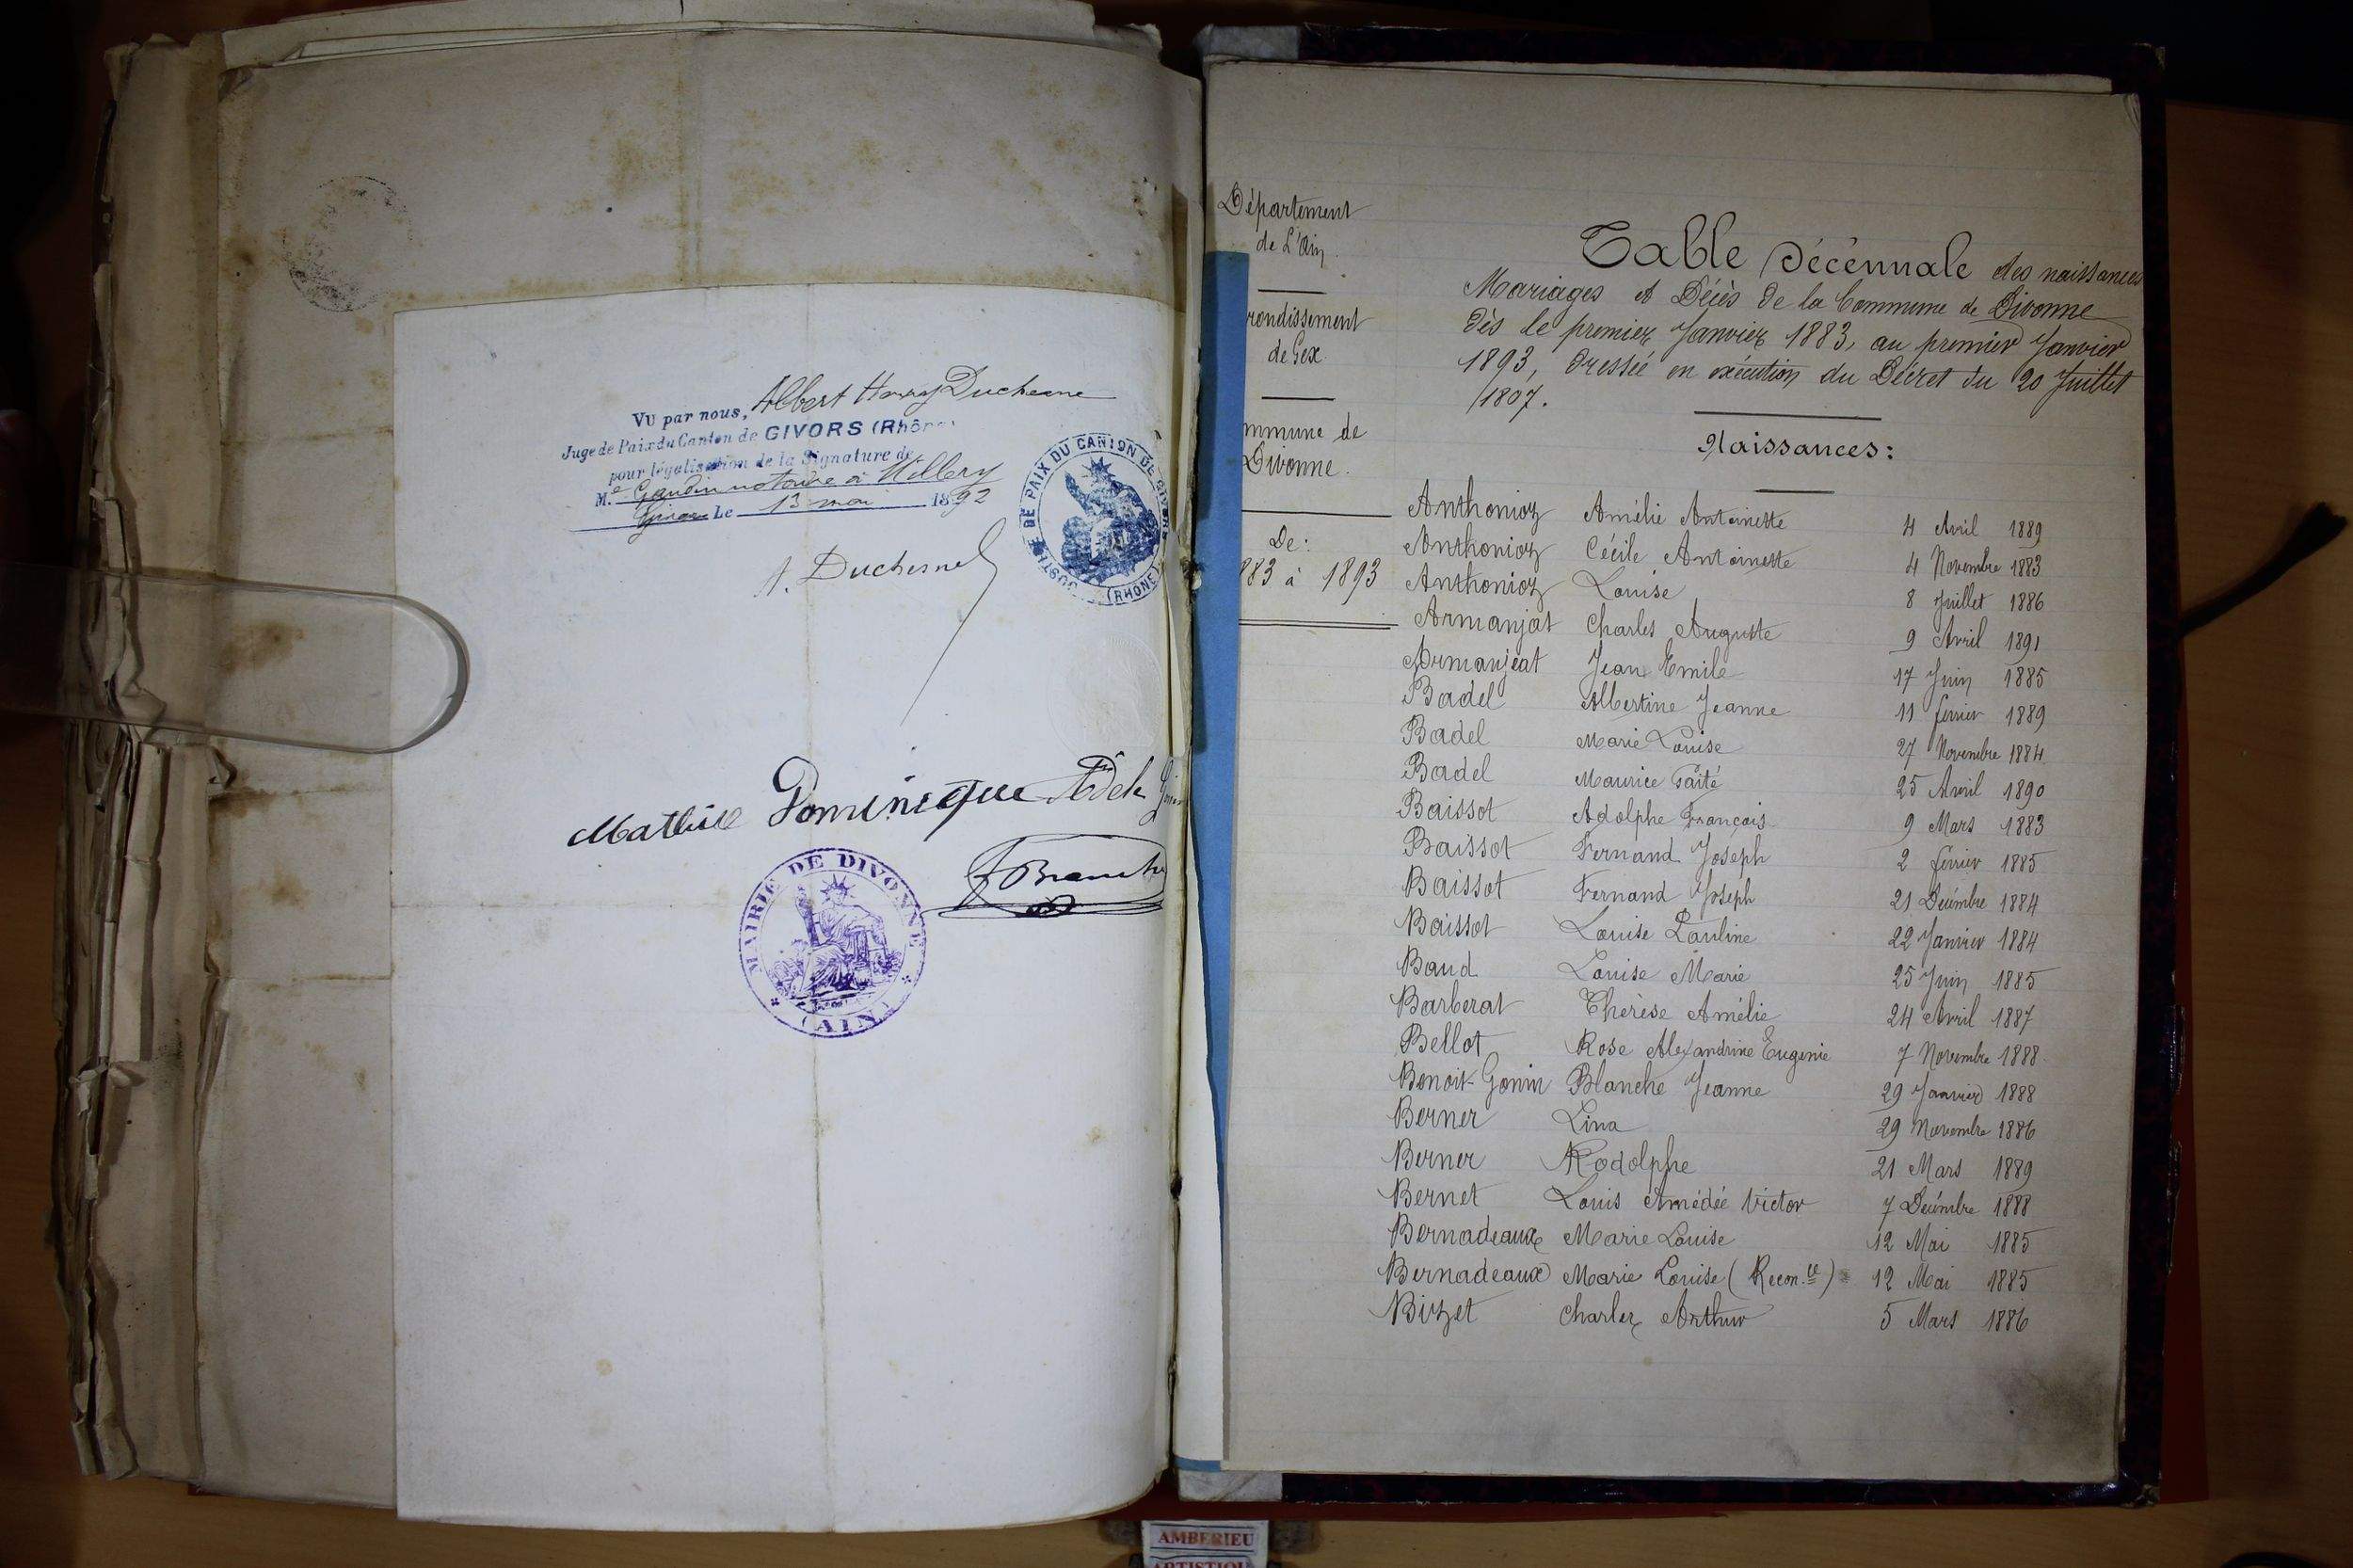 Vu par nous, Albert Henry Duchesne
Juge de Paix du Canton de GIVORS (Rhône)
pour légalisation de la Signature de
M.e Gaudin notaire à Millery
Givors Le 13 mai 1892
JUSTICE DE PAIX DU CANTON DE GIVORS
(RHÔNE)
A. Duchesne
Mathild Dominique Adèle
MAIRIE DE DIVONNE
(AIN)
Département
de L'Ain
rondissement
de Gex
mmune de
Divonne.
De:
883 à 1893
Table Décennale des naissances
Mariages et Décès de la Commune de Divonne
Dès le premier Janvier 1883, au premier Janvier
1893, dressée en exécution du Décret du 20 Juillet
1807.
Naissances:
Anthonioz Amélie Antoinette 4 Avril 1889
Anthonioz Cécile Antoinette 4 Novembre 1883
Anthonioz Louise 8 Juillet 1886
Armanjat Charles Auguste 9 Avril 1891
Armanjeat Jean Emile 17 Juin 1885
Badel Albertine Jeanne 11 février 1889
Badel Marie Louise 27 Novembre 1884
Badel Maurice 25 Avril 1890
Baissot Adolphe François 9 Mars 1883
Baissot Fernand Joseph 2 février 1885
Baissot Fernand Joseph 21 Décembre 1884
Baissot Louise Pauline 22 Janvier 1884
Baud Louise Marie 25 Juin 1885
Barberat Thérèse Amélie 24 Avril 1887
Bellot Rose Alexandrine Eugenie 7 Novembre 1888
Benoit-Gonin Blanche Jeanne 29 Janvier 1888
Berner Lina 29 Novembre 1886
Berner Rodolphe 21 Mars 1889
Bernet Louis Amédée Victor 7 Décembre 1888
Bernadeaux Marie Louise 12 Mai 1885
Bernadeaux Marie Louise (Recon.ce) 12 Mai 1885
Bizet Charles Arthur 5 Mars 1886
AMBERIEU